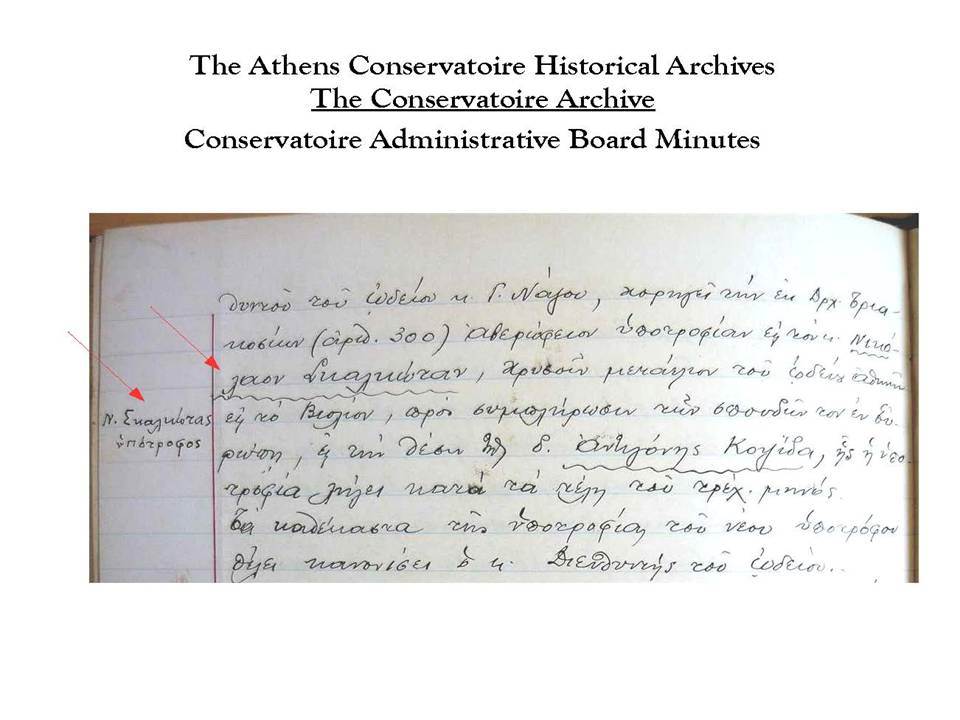 The Athens Conservatoire Historical Archives
The Conservatoire Archive
Conservatoire Administrative Board Minutes
θυντοῦ τοῦ ᾠδείου κ. Γ. Νάζου, χορηγεῖ τὴν ἐκ Δρχ. τρια-
κοσίων (ἀρ. 300) Ἀβερώφειον ὑποτροφίαν εἰς τὸν κ. Νικό-
λαον Σκαλκώταν, χρυσοῦν μετάλλιον τοῦ ᾠδείου Ἀθηνῶν
εἰς τὸ Βιολίον, πρὸς συμπλήρωσιν τῶν σπουδῶν του ἐν Εὐ-
Ν. Σκαλκώτας
ὑπότροφος
ρώπῃ, τὴν θέσιν δ. Ἀντιγόνης Κοψίδα, ἧς ἡ ὑπο-
τροφία λήγει κατὰ τὰ τέλη τοῦ τρέχ. μηνός.
Τὰ καθέκαστα τῆς ὑποτροφίας τοῦ νέου ὑποτρόφου
θέλει κανονίσει ὁ κ. Διευθυντής τοῦ ᾠδείου.